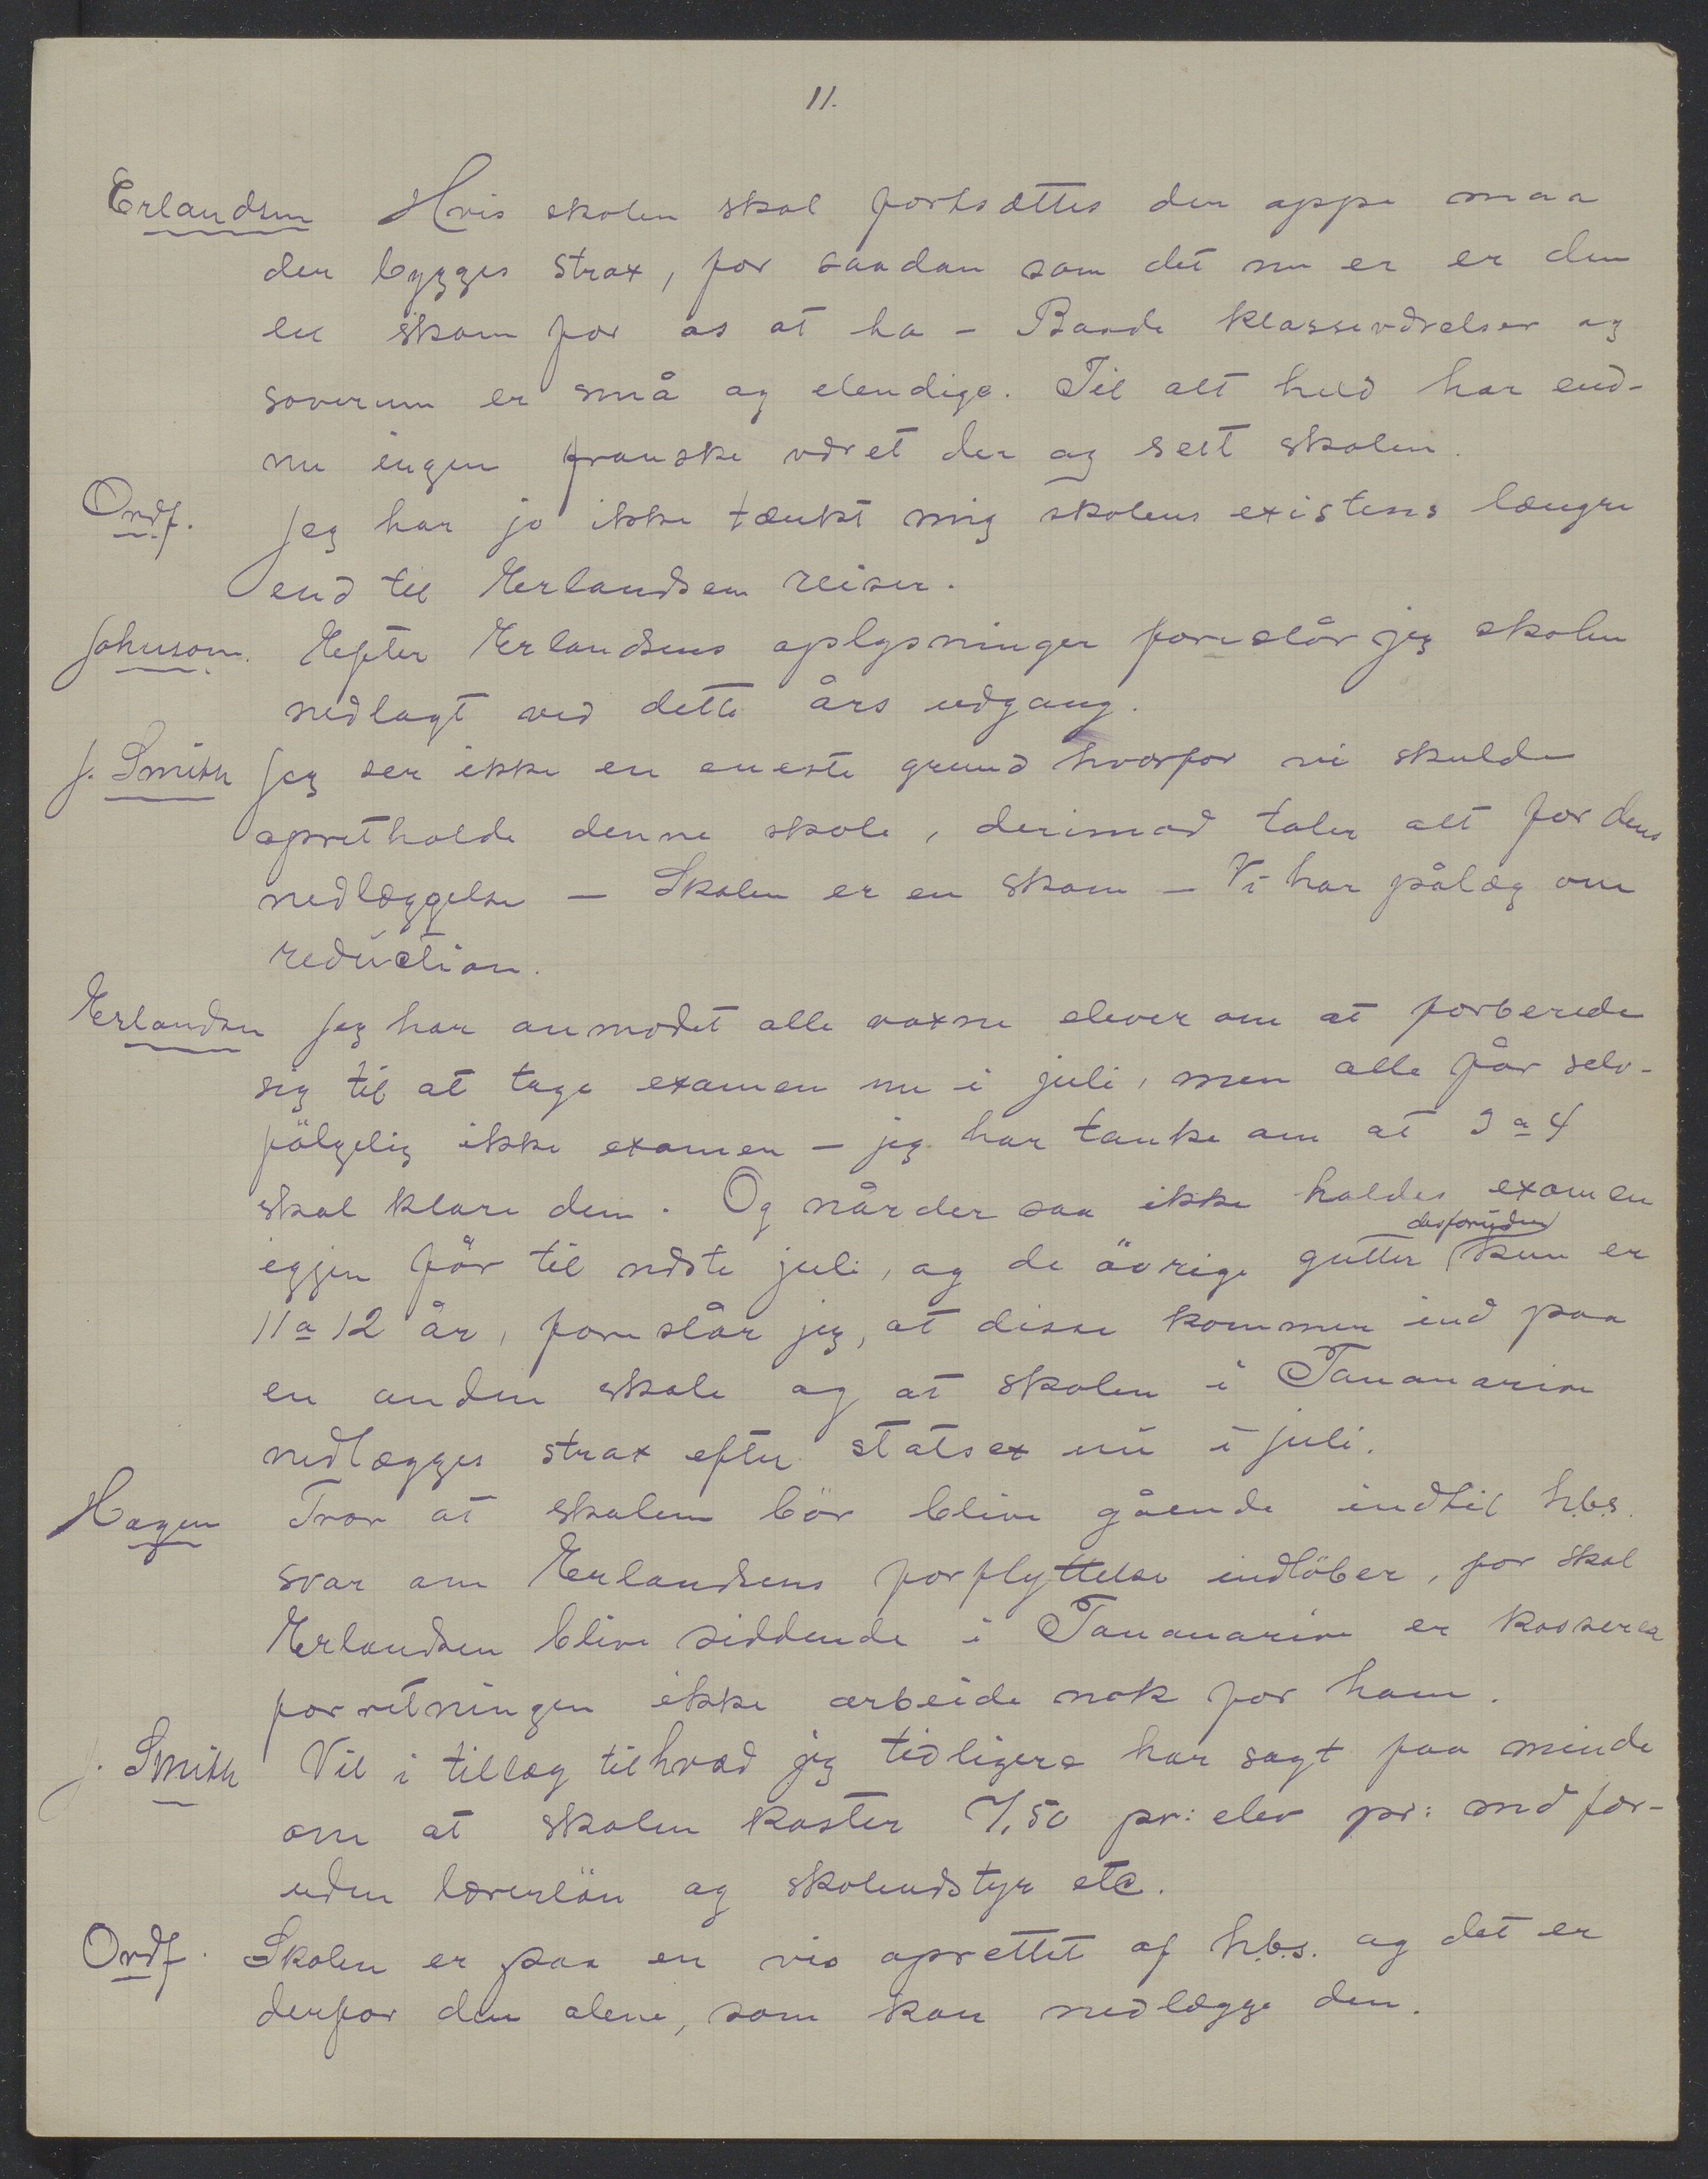 11.
Erlandsen Hvis skolen skal fortsættes der oppe maa
der bygges strax, for saadan som det nu er er den
en skam for os at ha - Baade klasseværelser og
soverum er små og elendige. Til alt held har end-
nu ingen franske været der og seet skolen.
Ordf. Jeg har jo ikke tænkt mig skolens existens længre
end til Erlandsen reiser.
Johnson. Efter Erlandsens oplysninger foreslår jeg skolen
nedlagt ved dette års udgang.
J. Smith Jeg ser ikke en eneste grund hvorfor vi skulde
opretholde denne skole, derimod taler alt for dens
nedlæggelse - Skolen er en skam - Vi har pålæg om
reduction.
Erlandsen Jeg har anmodet alle voxne elever om at forberede
sig til at tage examen nu i juli, men alle får selv-
følgelig ikke examen - jeg har tanke om at 3 a 4
skal klare den. Og når der saa ikke holdes examen
desforuden
igjen før til næste juli, og de øvrige gutter kun er
11 a 12 år, foreslår jeg, at disse kommer ind paa
en anden skole og at skolen i Tananarive
nedlægges strax efter statsex nu i juli.
Hagen Tror at skolen bør blive gående indtil h.b.s.
svar om Erlandsens forflyttelse indløber, for skal
Erlandsen blive siddende i Tananarive er kasserer
forretningen ikke arbeide nok for ham.
J. Smith Vil i tillæg til hvad jeg tidligere har sagt faa minde
om at skolen koster 7,50 pr: elev pr: md for-
uden lærerløn og skoleudstyr etc.
Ordf. Skolen er paa en vis oprettet af h.b.s. og det er
derfor den alene, som kan nedlægge den.